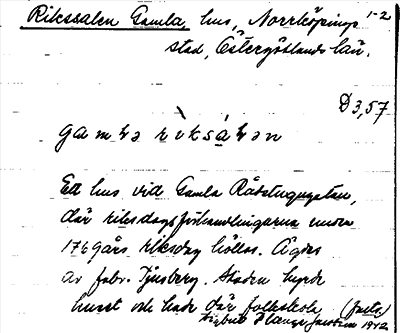 Rikssalen Gamla, hus, Norrköpings 1-2
stad, Östergötlands län.
D3,57
gamla riksalen
Ett hus vid Gamla Rådstugugatan,
där riksdagsförhandlingarna under
1769 års riksdag höllos. Ägdes
av fabr. Tjusberg. Staden hyrde
huset och hade där folkskola
1942